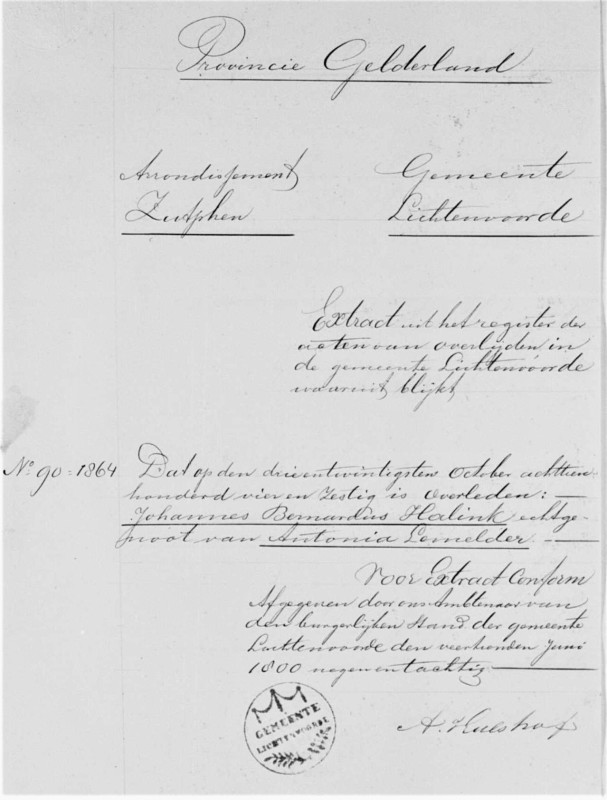 Provincie Gelderland
Arrondissement
Zutphen
Gemeente
Lichtenvoorde
Extract uit het register der
acten van overlijden in
de gemeente Lichtenvoorde
waaruit blijkt
No 90 = 1864
Dat op den drieentwintigsten October achttien
honderd vier en Zestig is overleden: —
Johannes Bernardus Halink echtge-
noot van Antonia Lemelder. —
Voor Extract Conform
Afgegeven door ons Ambtenaar van
den burgerlijken Stand der gemeente
Lichtenvoorde den veertienden Juni
1800 negenentachtig —
GEMEENTE
LICHTENVOORDE
A. Hulshof